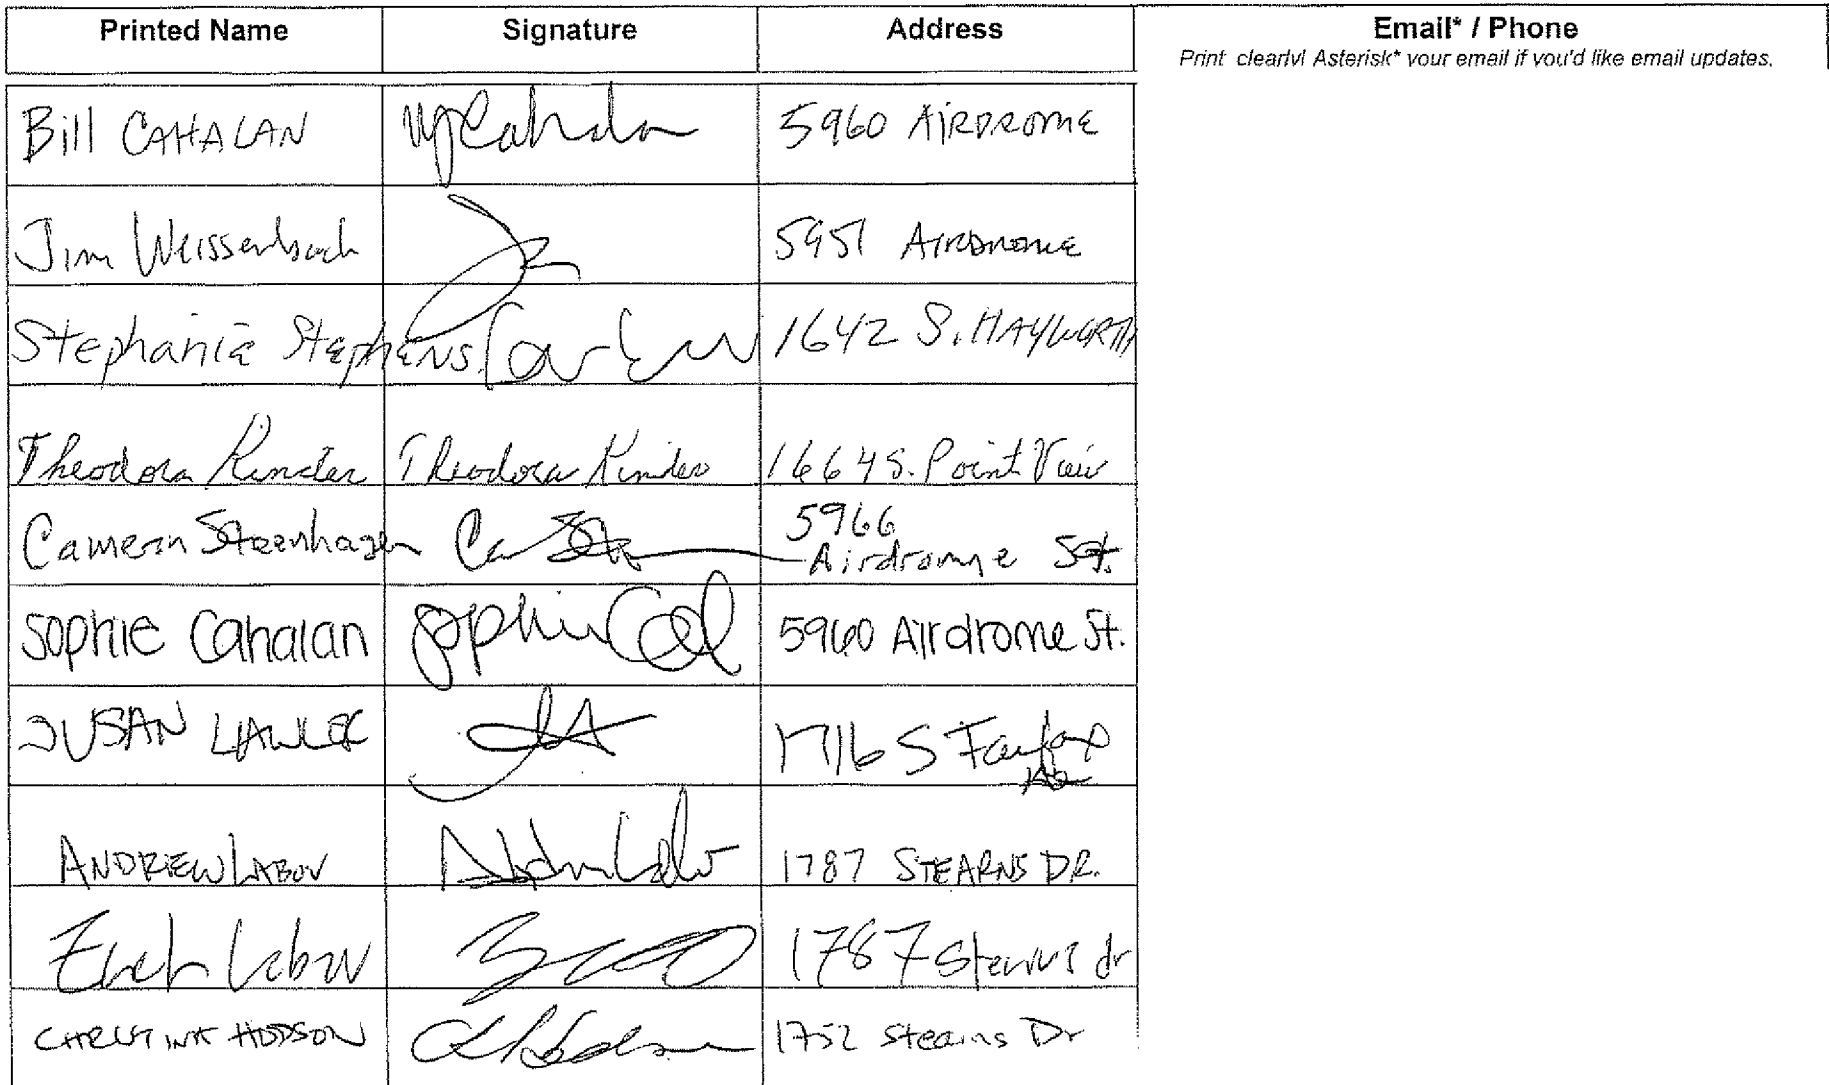 Printed Name Signature Address Email* / Phone
Print clearly! Asterisk* your email if you'd like email updates.
Bill CAHALAN 5960 AIRDROME
Jim Weissenbach 5951 AIRDROME
Stephanie Stephens 1642 S. HAYWORTH
Theodora Kinder Theodora Kinder 1664 S. Point View
Cameron Steenhagen 5966
Airdrome St.
Sophie Cahalan Sophie 5960 Airdrome St.
SUSAN LAWLER 1716 S Fairfax
Ave
ANDREW LABOV 1787 STEARNS DR.
Labov 1787 Stearns dr
CHRISTINE HODSON 1752 Stearns Dr